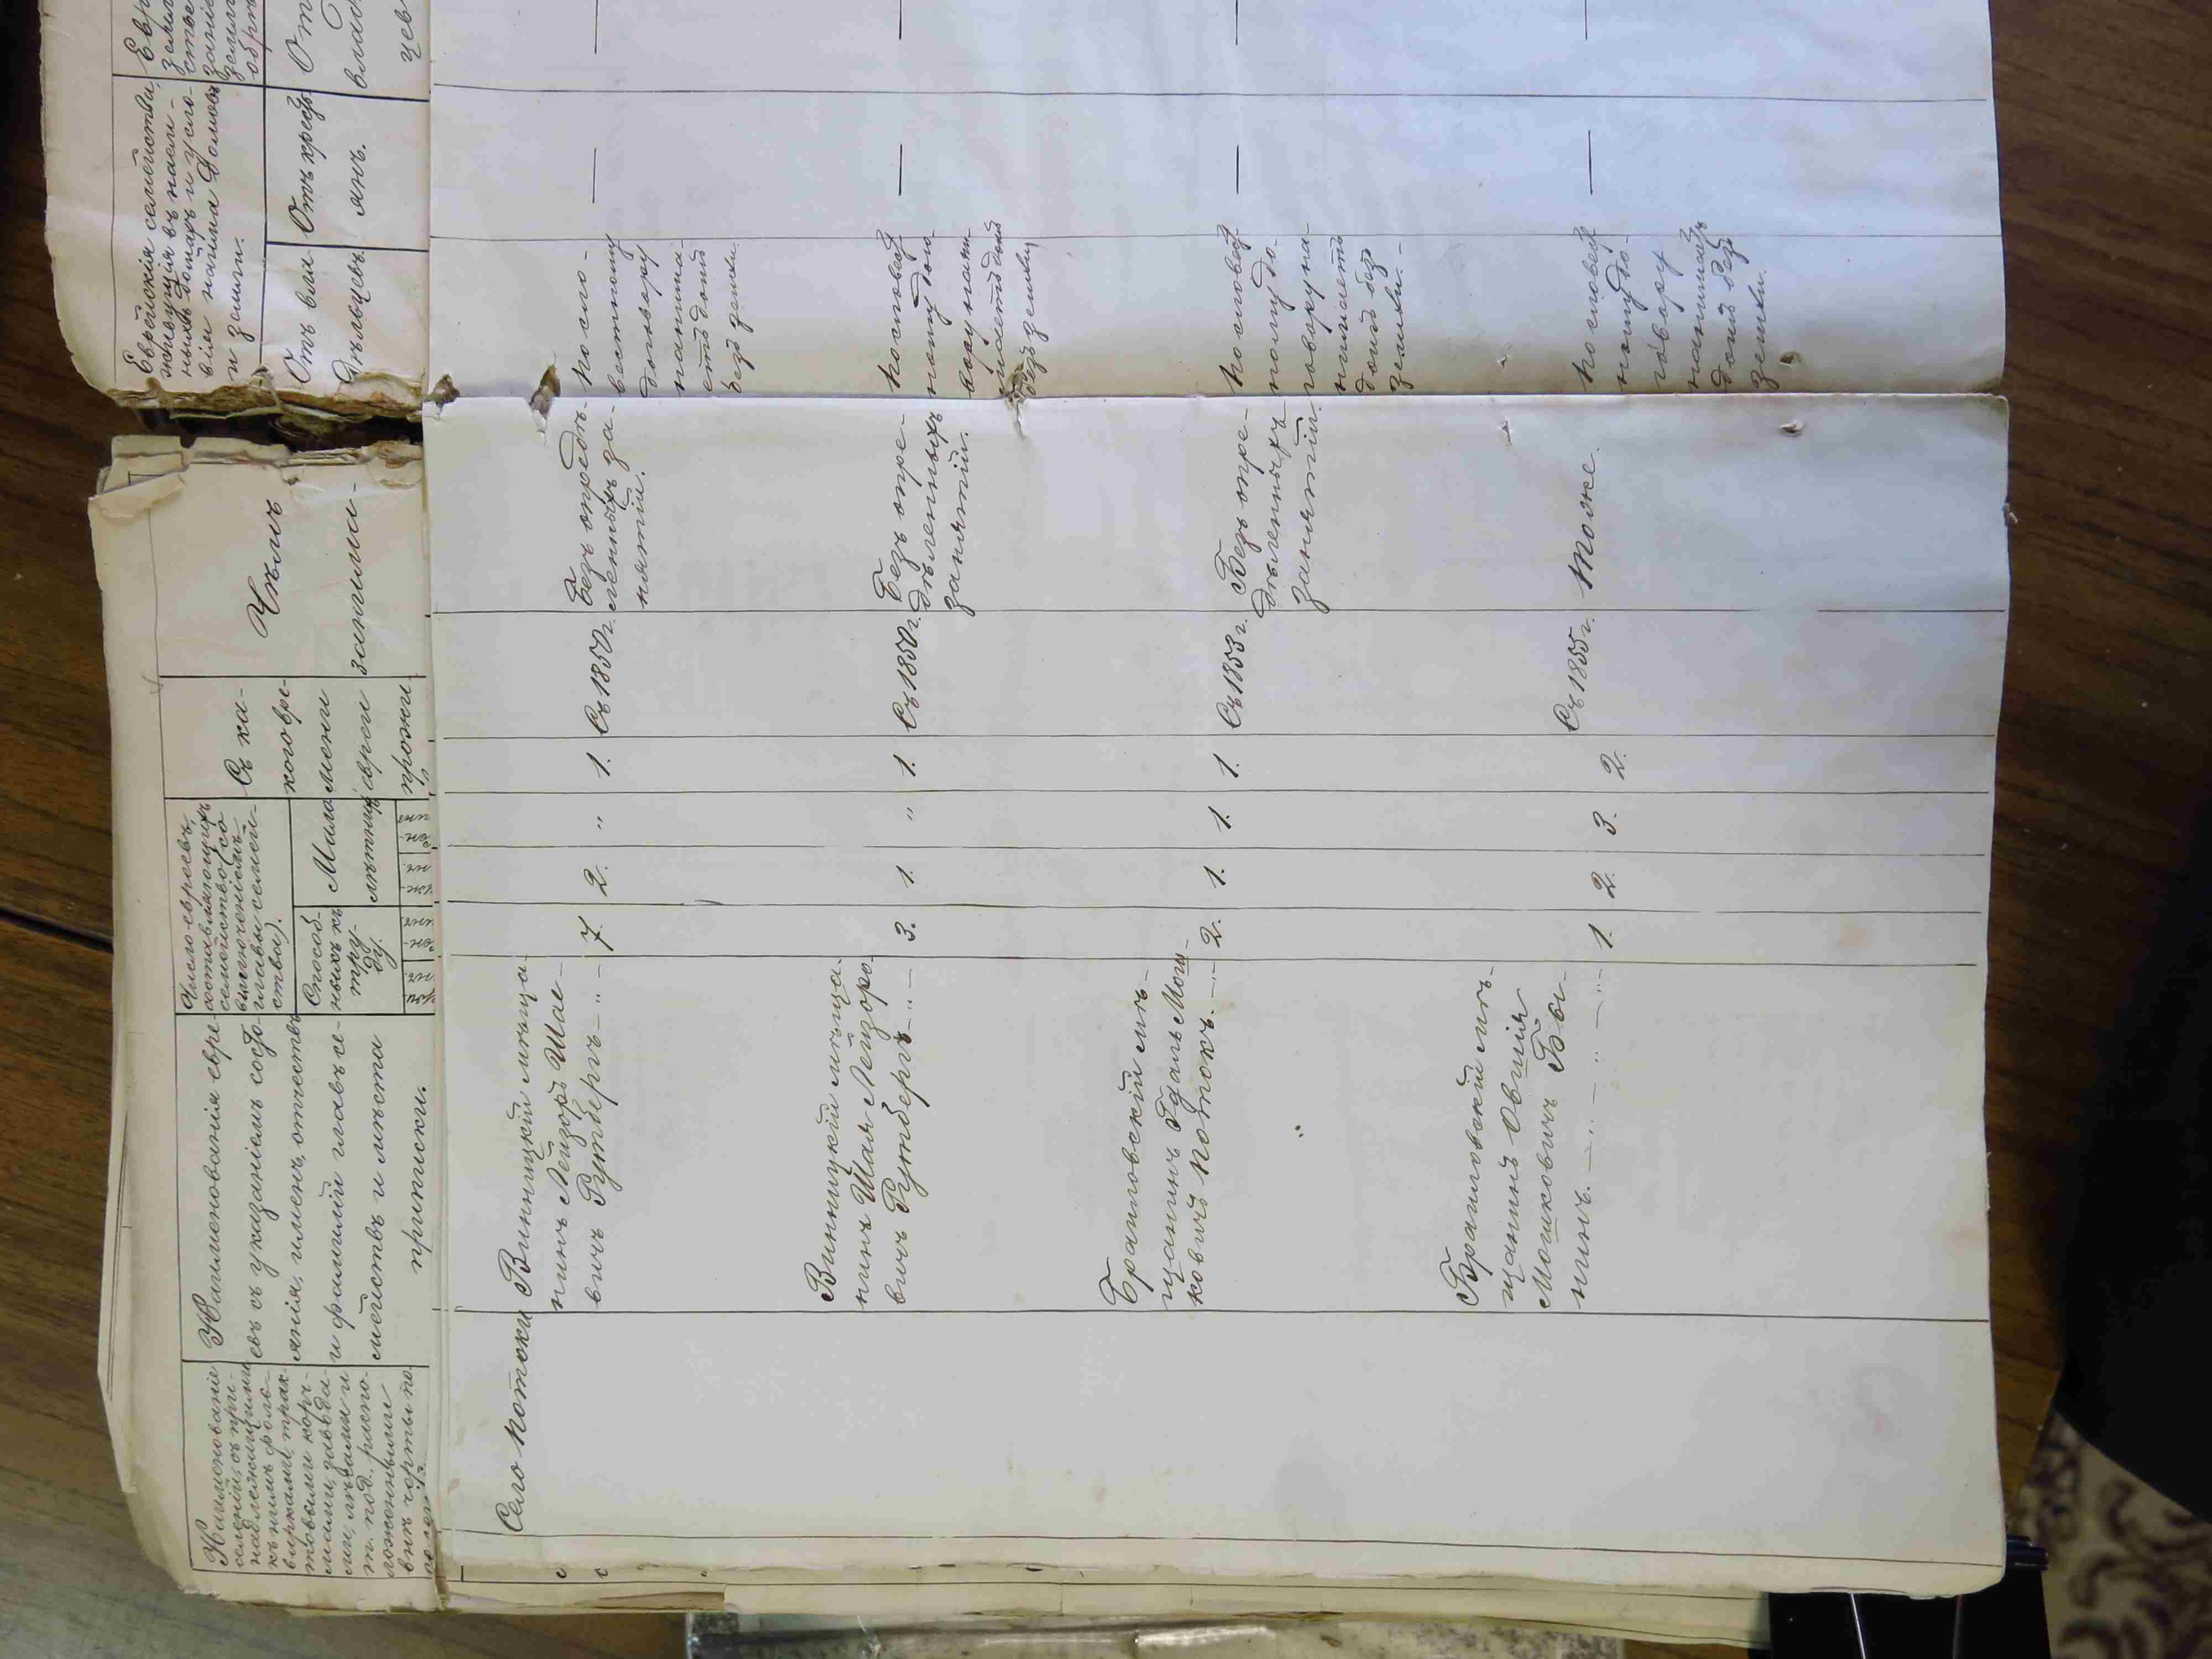 Наименованіе
селеній, съ при-
надлежащими
къ нимъ фоль-
варками, трак-
товыми корч-
мами, завода-
ми, млынами и
т. под., распо-
ложенными
внѣ черты по-
Наименованія евре-
евъ съ указаніемъ состо-
янія, именъ, отчествъ
и фамилій главъ се-
мействъ и мѣста
приписки.
Число евреевъ,
составляющихъ
семейство (со
включеніемъ
главы семей-
ства).
Способ-
ныхъ къ
тру-
ду.
Мало
лѣтнихъ
Съ ка-
кого вре-
мени
евреи
прожи-
Чѣмъ
занима-
Еврейскія семейства,
живущія въ наем-
ныхъ домахъ и усло-
вія найма домовъ
и земли.
Отъ вла-
дѣльцевъ.
Отъ кресть-
янъ.
Село Потоки
Винницкій мѣща-
нинъ Лейзоръ Шае-
вичъ Рутбергъ — „ —
7. 2. „ 1.
Съ 1850 г.
Безъ опредѣ-
ленныхъ за-
нятій.
По сло-
вестному
договору
нанима-
етъ домъ
безъ земли.
—
—
Винницкій мѣща-
нинъ Шая Лейзоро-
вичъ Рутбергъ — „ —
3. 1. „ 1.
Съ 1850 г.
Безъ опре-
дѣленныхъ
занятій.
По словест
ному дого-
вору нани-
маетъ домъ
безъ земли
—
—
Браиловскій мѣ-
щанинъ Гдаль Мош-
ковичъ Потокъ. — „ —
2. 1. 1. 1.
Съ 1853 г.
Безъ опре-
дѣленныхъ
занятій.
По словест
ному до-
говору на-
нимаетъ
домъ безъ
земли. —
—
Браиловскій мѣ-
щанинъ Овшія
Мошковичъ Бы-
кинъ. — „ — „ — „
1. 2. 3. 2.
Съ 1855 г.
Тоже.
По словест
ному до-
говору
нанимаетъ
домъ безъ
земли.
—
—